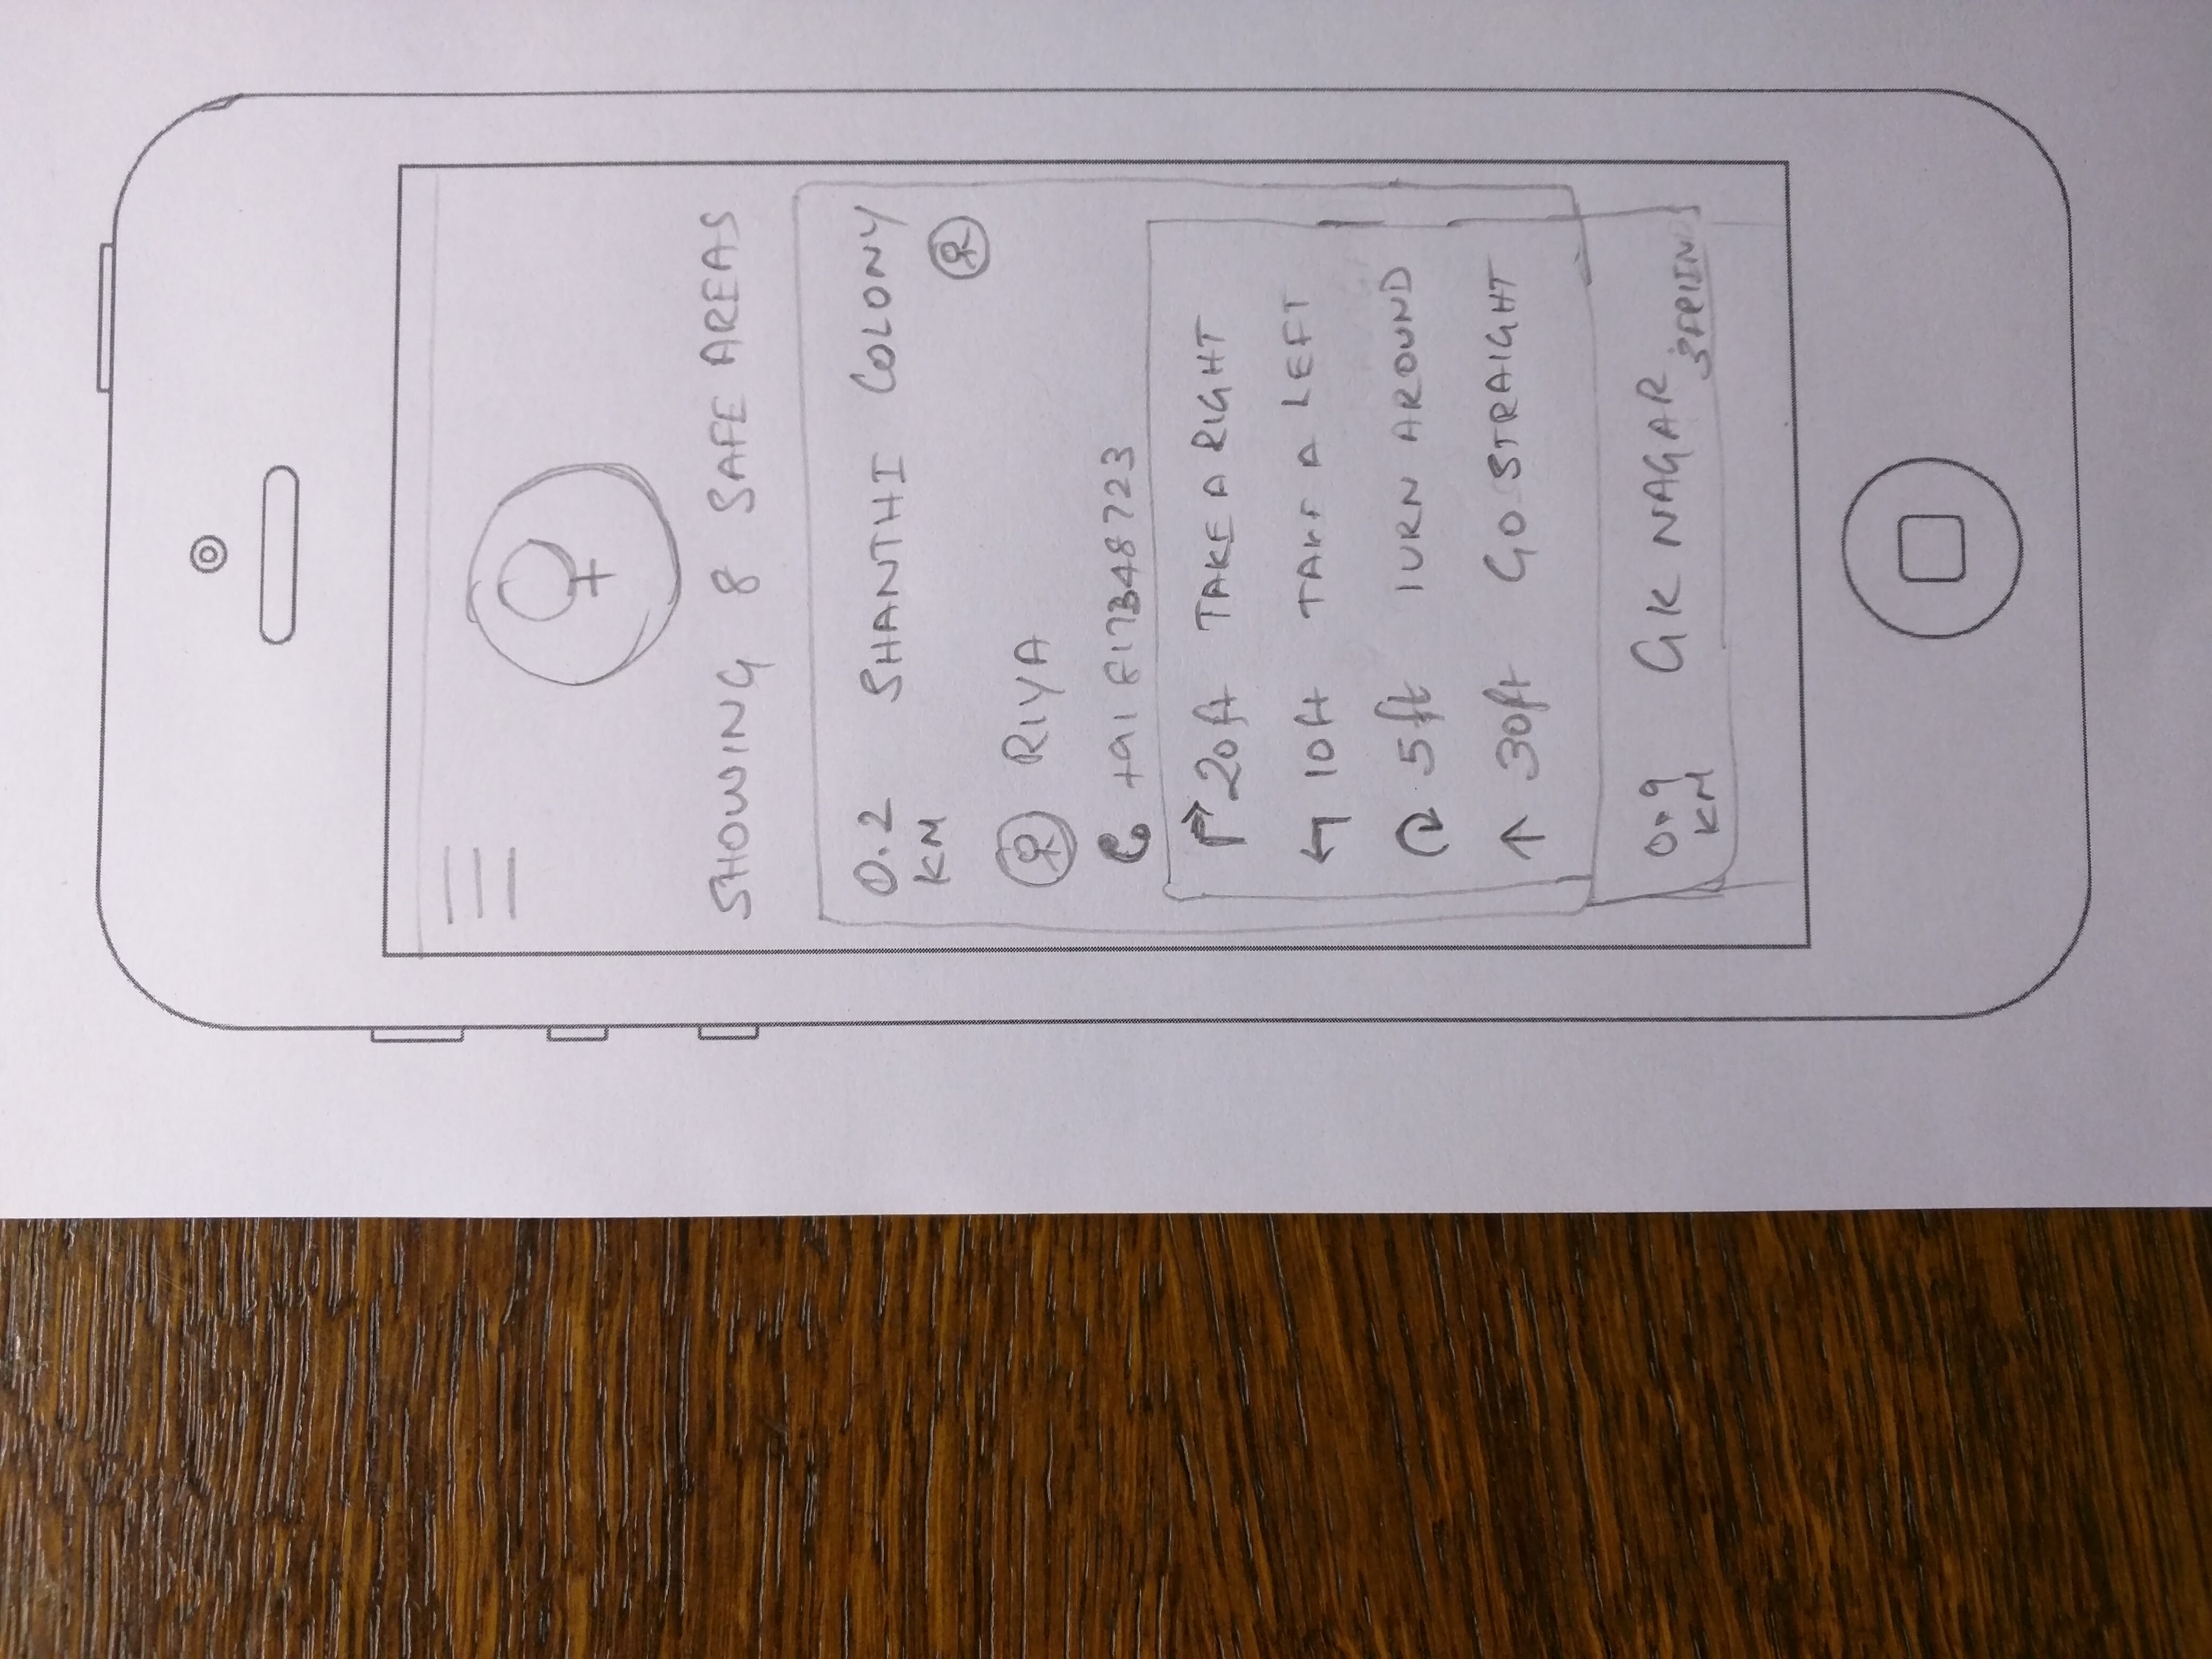 SHOWING 8 SAFE AREAS
0.2 KM SHANTHI COLONY
RIYA
+91
20ft TAKE A RIGHT
10ft TAKE A LEFT
5ft TURN AROUND
30ft GO STRAIGHT
0.9 KM GK NAGAR